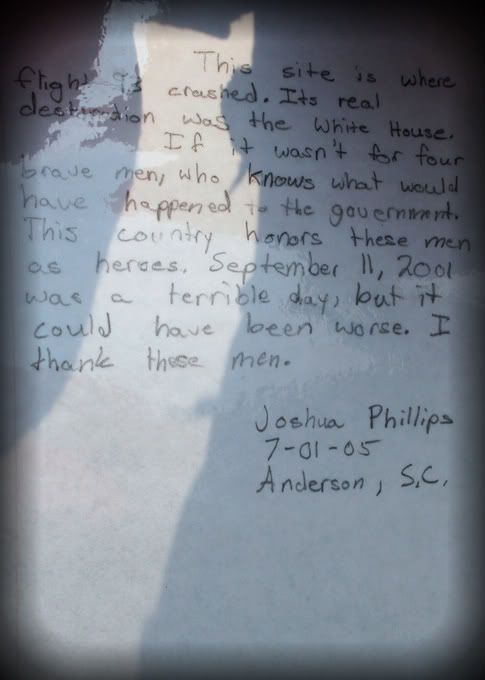 This site is where
flight 93 crashed. Its real
destination was the White House.
If it wasn't for four
brave men, who knows what would
have happened to the government.
This country honors these men
as heroes. September 11, 2001
was a terrible day, but it
could have been worse. I
thank these men.
Joshua Phillips
7-01-05
Anderson, S.C.